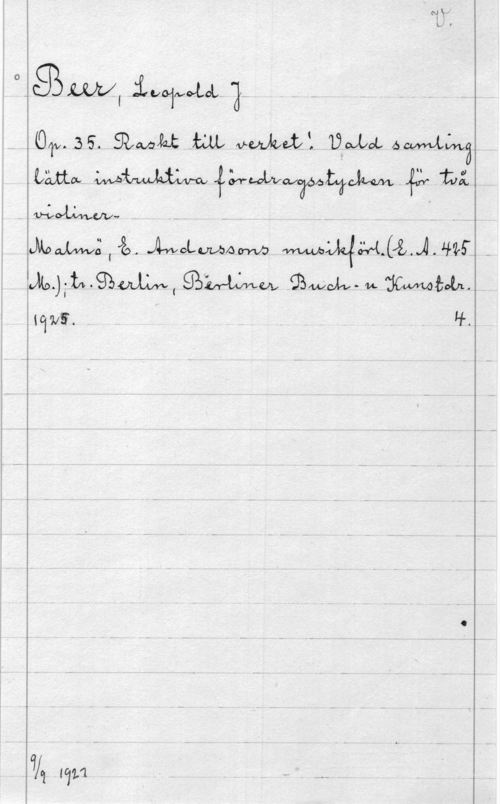 V.
Beer, Leopold J
Op. 35. Raskt till verket! Vald samling
lätta instruktiva föredragsstycken för två
violiner.
Malmö, E. Anderssons musikförl. (E. A. 425
M.); tr. Berlin, Berliner Buch- u Kunstdr.
1925. 4.
9/9 1927